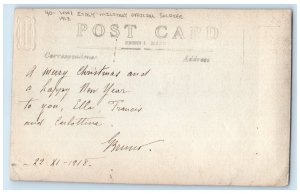 WWI MILITARY OFFICER SOLDIER
1913
POST CARD
Correspondence
Address
A Merry Christmas and
a happy New Year
to you, Ella Francis
and Carlottina.
Bruno.
-22-XI-1918.-